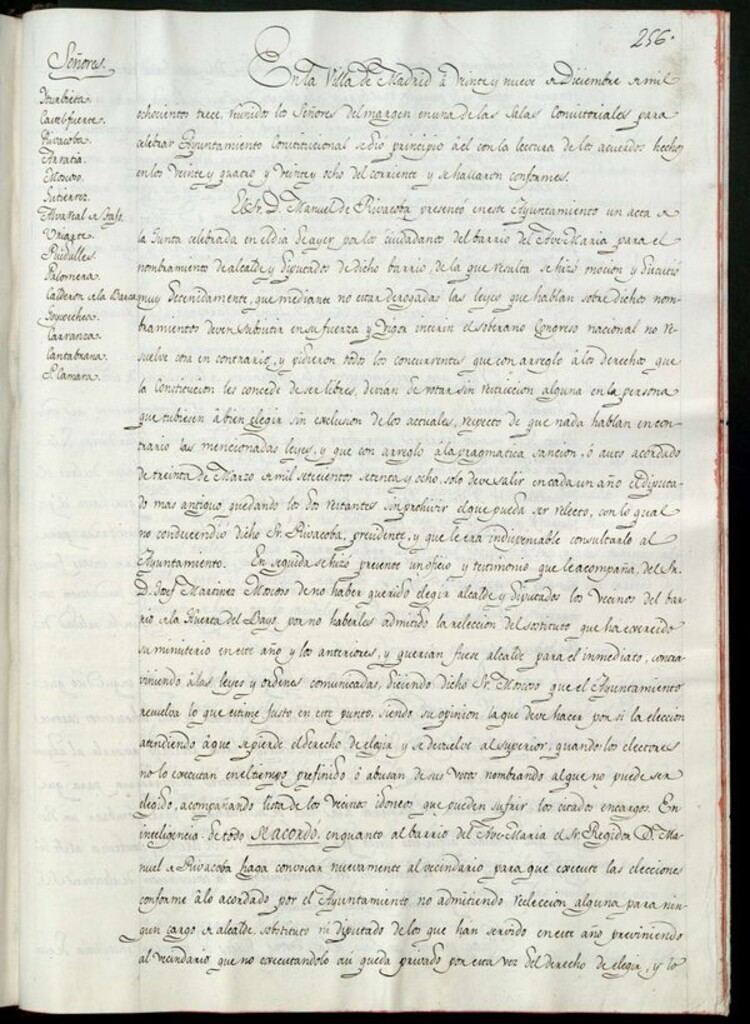 256.
Señores.
Yturbieta.
Castelfuerte.
Rivacoba.
Arratia.
Moscoso.
Gutierrez.
Uriarte.
Palomera.
Calderon de la Barca
Goycoechea.
Carranza.
Cantabrana.
P. Camara.
En la Villa de Madrid á veinte y nueve de Diciembre de mil
ochocientos trece, reunidos los Señores del margen en una de las Salas Consistoriales para
celebrar Ayuntamiento Constitucional se dió principio á él con la lectura de los acuerdos hechos
en los veinte y quatro y veinte y ocho del corriente y se hallaron conformes.
El Sr. D. Manuel de Rivacoba presentó en este Ayuntamiento un acta de
la Junta celebrada en el dia de ayer por los ciudadanos del barrio del Ave-Maria para el
nombramiento de alcalde y Diputados de dicho barrio, de la que resulta se hizó mocion y discutió
muy detenidamente, que mediante no estar derogadas las leyes que hablan sobre dichos nom-
bramientos deven subsistir en su fuerza y vigor interin el soberano Congreso nacional no re-
suelve cosa en contrario, y pidieron todos los concurrentes que con arreglo á los derechos que
la Constitucion les concede de ser libres, devian de votar sin restriccion alguna en la persona
que tubiesen á bien elegir sin exclusion de los actuales, respecto de que nada hablan en con-
trario las mencionadas leyes, y que con arreglo á la pragmatica sancion, ó auto acordado
de treinta de Marzo de mil setecientos setenta y ocho, solo deve salir en cada un año el diputa-
do mas antiguo, quedando los dos restantes sin prohivir el que pueda ser relecto, con lo qual
no condescendió dicho Sr. Rivacoba, presidente, y que le era indispensable consultarlo al
Ayuntamiento. En seguida se hizo presente un oficio y testimonio que le acompaña, del Sr.
D. Josef Martinez Moscoso de no haber querido elegir alcalde y Diputados los vecinos del bar-
rio de la Huerta del Bayo, por no haberles admitido la releccion del sostituto que ha exercido
su ministerio en este año y los anteriores, y querian fuese alcalde para el inmediato, contra-
viniendo á las leyes y ordenes comunicadas, diciendo dicho Sr. Moscoso que el Ayuntamiento
resuelva lo que estime justo en este punto, siendo su opinion la que deve hacer por si la eleccion
atendiendo á que se pierde el derecho de elegir y se devuelve al superior, quando los electores
no lo executan en el tiempo prefinido ó abusan de sus votos nombrando al que no puede ser
elegido, acompañando lista de los vecinos idoneos que pueden sufrir los citados encargos. En
inteligencia de todo Se acordó: en quanto al barrio del Ave-Maria el Sr. Regidor D. Ma-
nuel de Rivacoba haga convocar nuevamente al vecindario para que execute las elecciones
conforme á lo acordado por el Ayuntamiento no admitiendo releccion alguna para nin-
gun cargo de alcalde, sobstituto ni diputado de los que han servido en este año previniendo
al vecindario que no executandolo asi queda privado por esta vez del derecho de elegir, y lo